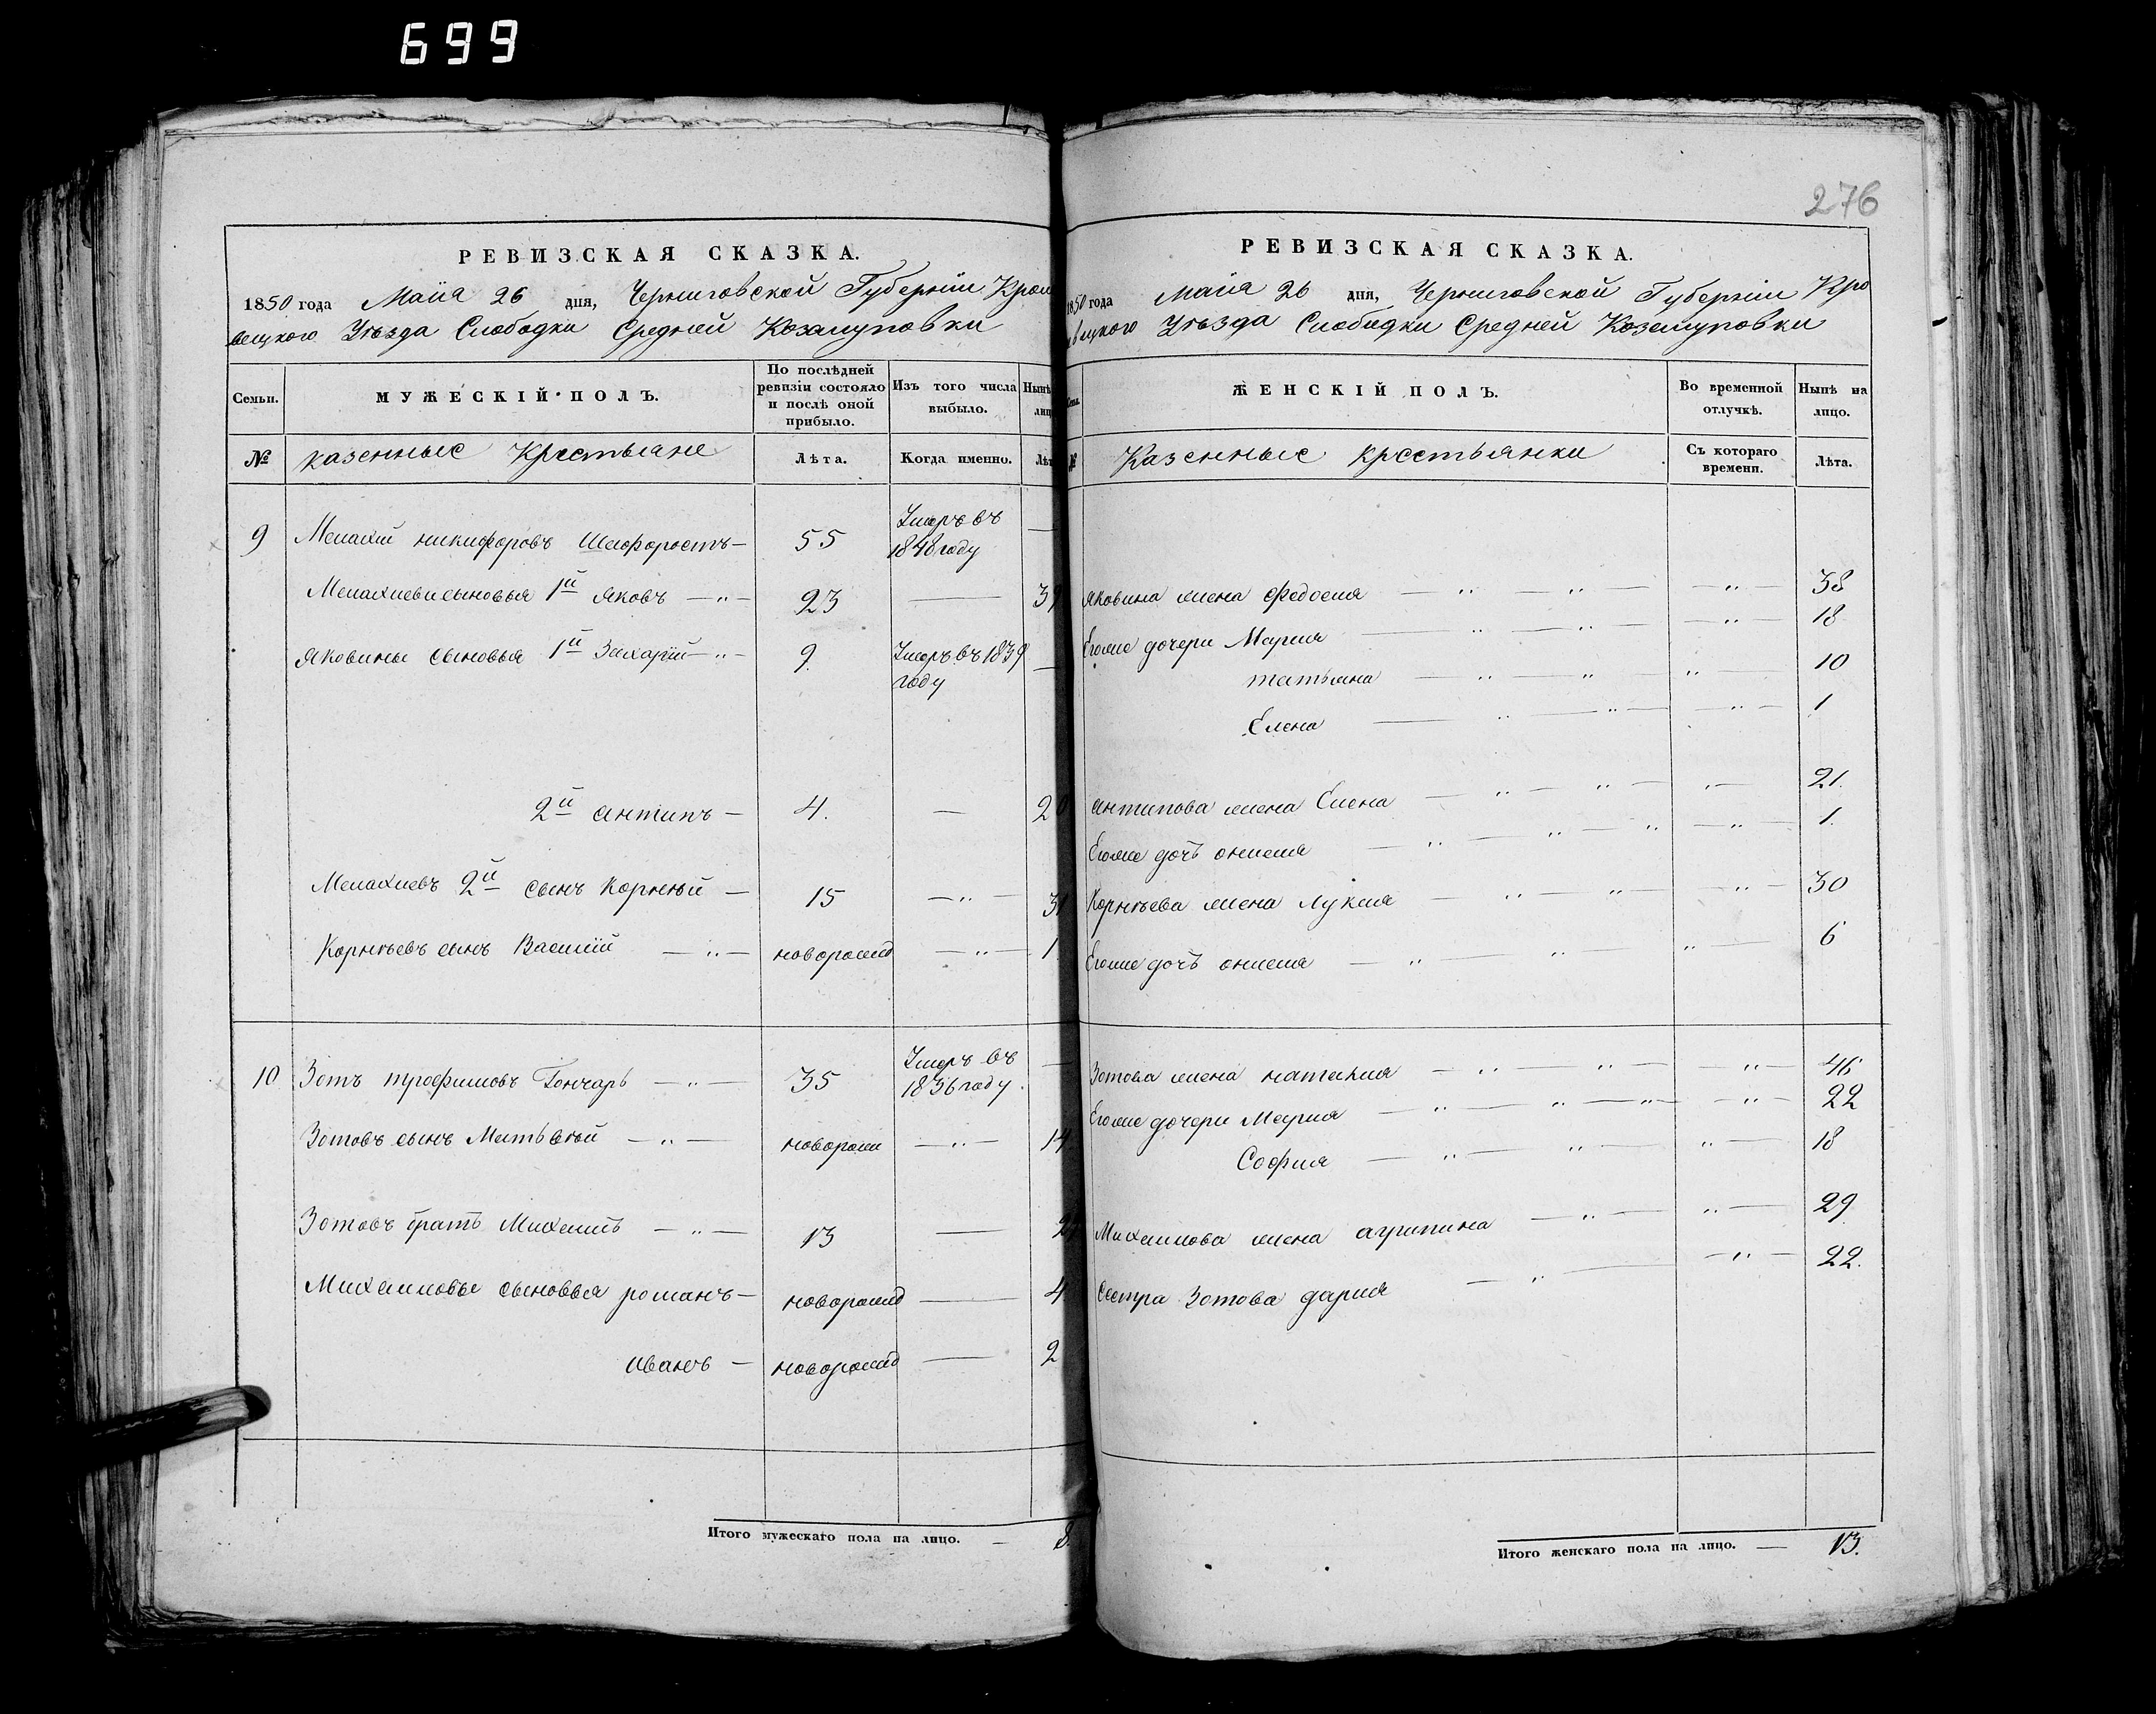 699
РЕВИЗСКАЯ СКАЗКА.
1850 года Маiя 26 дня, Черниговской Губернiи Крол
вецкого Уѣзда Слободки Средней Козацуповки
Семьи. МУЖЕСКІЙ ПОЛЪ. По послѣдней ревизіи состояло и послѣ оной прибыло. Изъ того числа выбыло. Нынѣ лицо
№ казенные Крестьяне Лѣта. Когда именно. Лѣт
9 Малахiй никифоровъ Шелофостъ — 55 Умеръ въ 1848 году —
Малахiеви сыновья 1й яковъ — 23 — 39
Яковины сыновья 1й Захарiй — 9. Умеръ въ 1839 году —
2й антипъ — 4. — 20
Малахiевъ 2й сынъ Корнѣй — 15 — 31
Корнѣевъ сынъ Василiй — новорожд — 1
10 Зотъ трофимовъ Гончаръ — 35 Умеръ въ 1836 году. —
Зотовъ сынъ Матьвѣй — новорож — 14
Зотовъ братъ Михаилъ — 13 — 29
Михаиловы сыновья романъ — новорожд — 4
иванъ — новорожд — 2
Итого мужескаго пола на лицо. — 8.
276
РЕВИЗСКАЯ СКАЗКА.
1850 года Маiя 26 дня, Черниговской Губернiи Кро
вецкого Уѣзда Слободки Средней Козацуповки
ЖЕНСКІЙ ПОЛЪ. Во временной отлучкѣ. Нынѣ на лицо.
№ Казенные крестьянки Съ котораго времени. Лѣта.
Яковина жена Федосия — 38
Егоже дочери Мария — 18
татьяна — 10
Елена — 1
антипова жена Елена — 21.
Егоже дочь — 1.
Корнѣева жена Лукия — 30
Егоже дочь — 6
Зотова жена наталия — 46
Егоже дочери Мария — 22
София — 18
Михаилова жена агрипина — 29
Сестра Зотова дария — 22.
Итого женскаго пола на лицо. — 13.